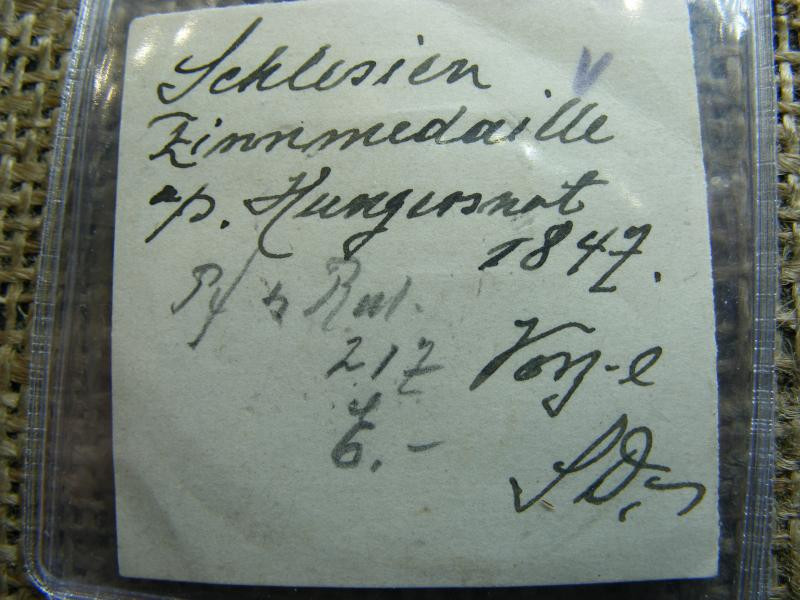 Schlesien
Zinnmedaille
a/s. Hungersnot
1847.
217 Vorz-l
6.-